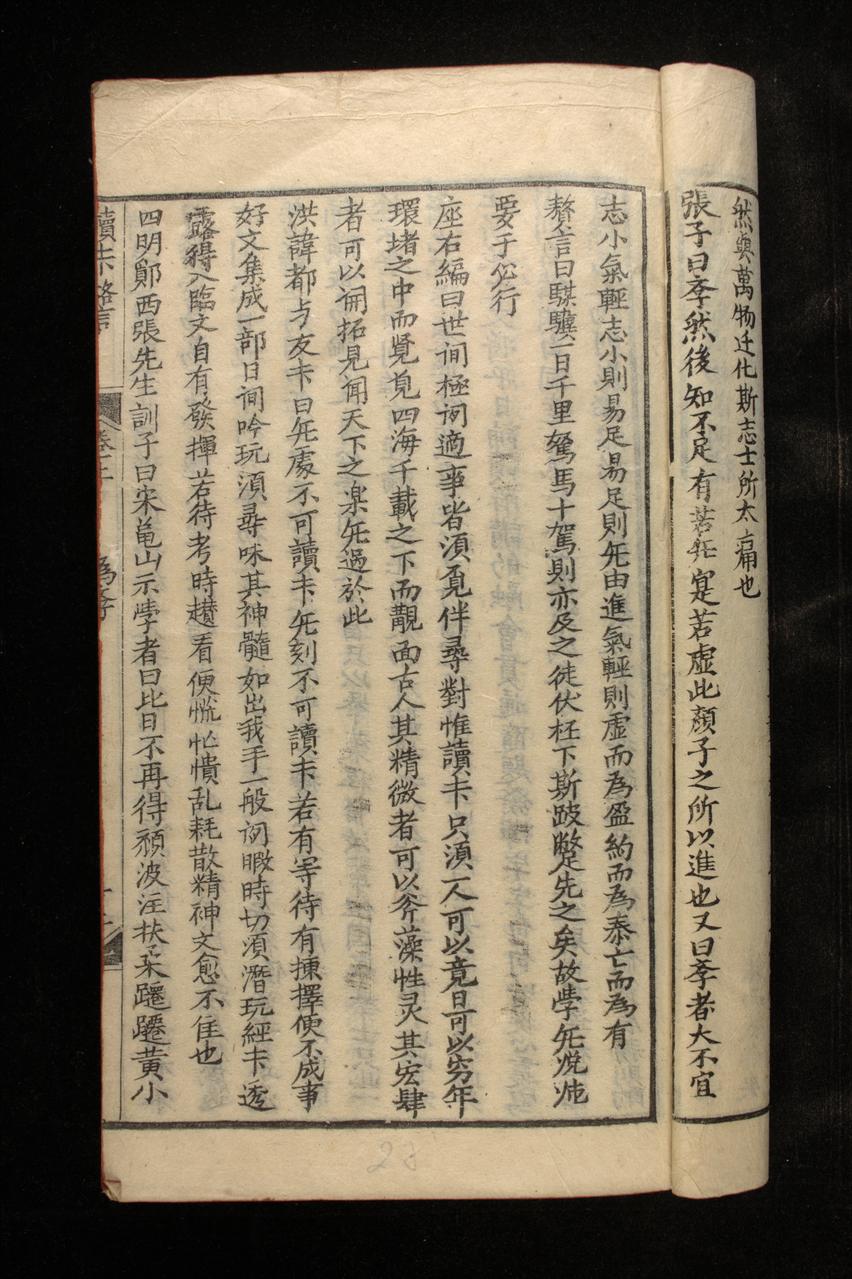 然與萬物迁化斯志士所太痛也
張子曰斈然後知不足有若旡寔若虛此顏子之所以進也又曰斈者大不宜
志小氣輕志小則易足易足則旡由進氣輕則虛而為盈約而為泰亡而為有
贅言曰騏驥一日千里駑馬十駕則亦及之徒伏枉下斯跛鱉先之矣故斈旡
要于必行
座右編曰世间極闲適事皆須覓伴尋對惟讀卡只須一人可以竟日可以穷年
環堵之中而覽見四海千載之下而覿面古人其精微者可以斧藻性灵其宏肆
者可以闹拓見闻天下之楽旡過於此
洪諱都与友卡曰旡處不可讀卡旡刻不可讀卡若有等待有揀擇便不成事
好文集成一部日间吟玩湏尋味其神髓如出我手一般闲暇時切湏潛玩經卡透
露得入臨文自有發揮若待考時趲看便慌忙憒乱耗散精神文愈不佳也
四明鄞西張先生訓子曰宋亀山示斈者曰此日不再得頹波注扶桒躚躚黄小
讀卡略言
卷二
為斈